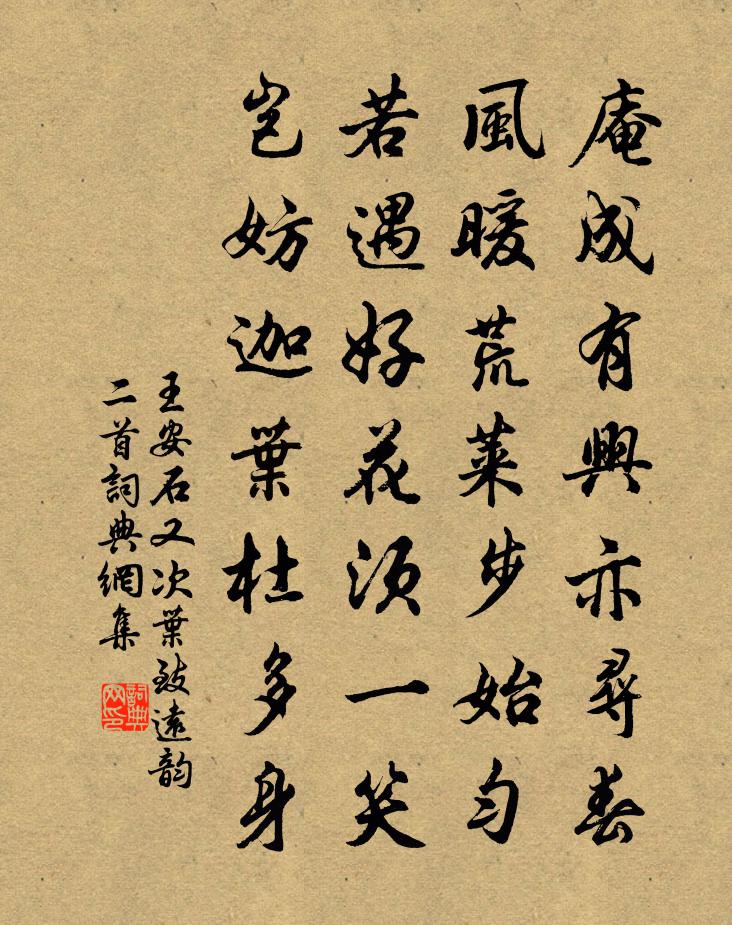 庵成有興亦尋春
風暖荒萊步始勻
若遇好花須一笑
豈妨迦葉杜多身
王安石又次葉致遠韵
二首詞典網集
詞典网印